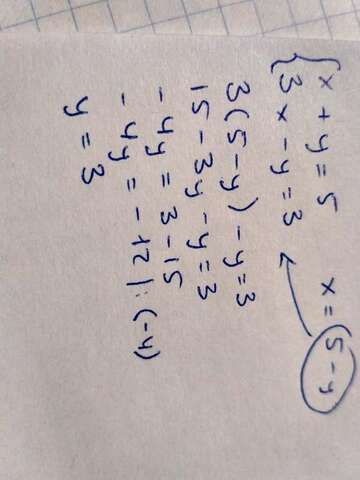 { x + y = 5 x = 5 - y
3x - y = 3
3(5-y) - y = 3
15 - 3y - y = 3
- 4y = 3 - 15
- 4y = - 12 | : (-4)
y = 3